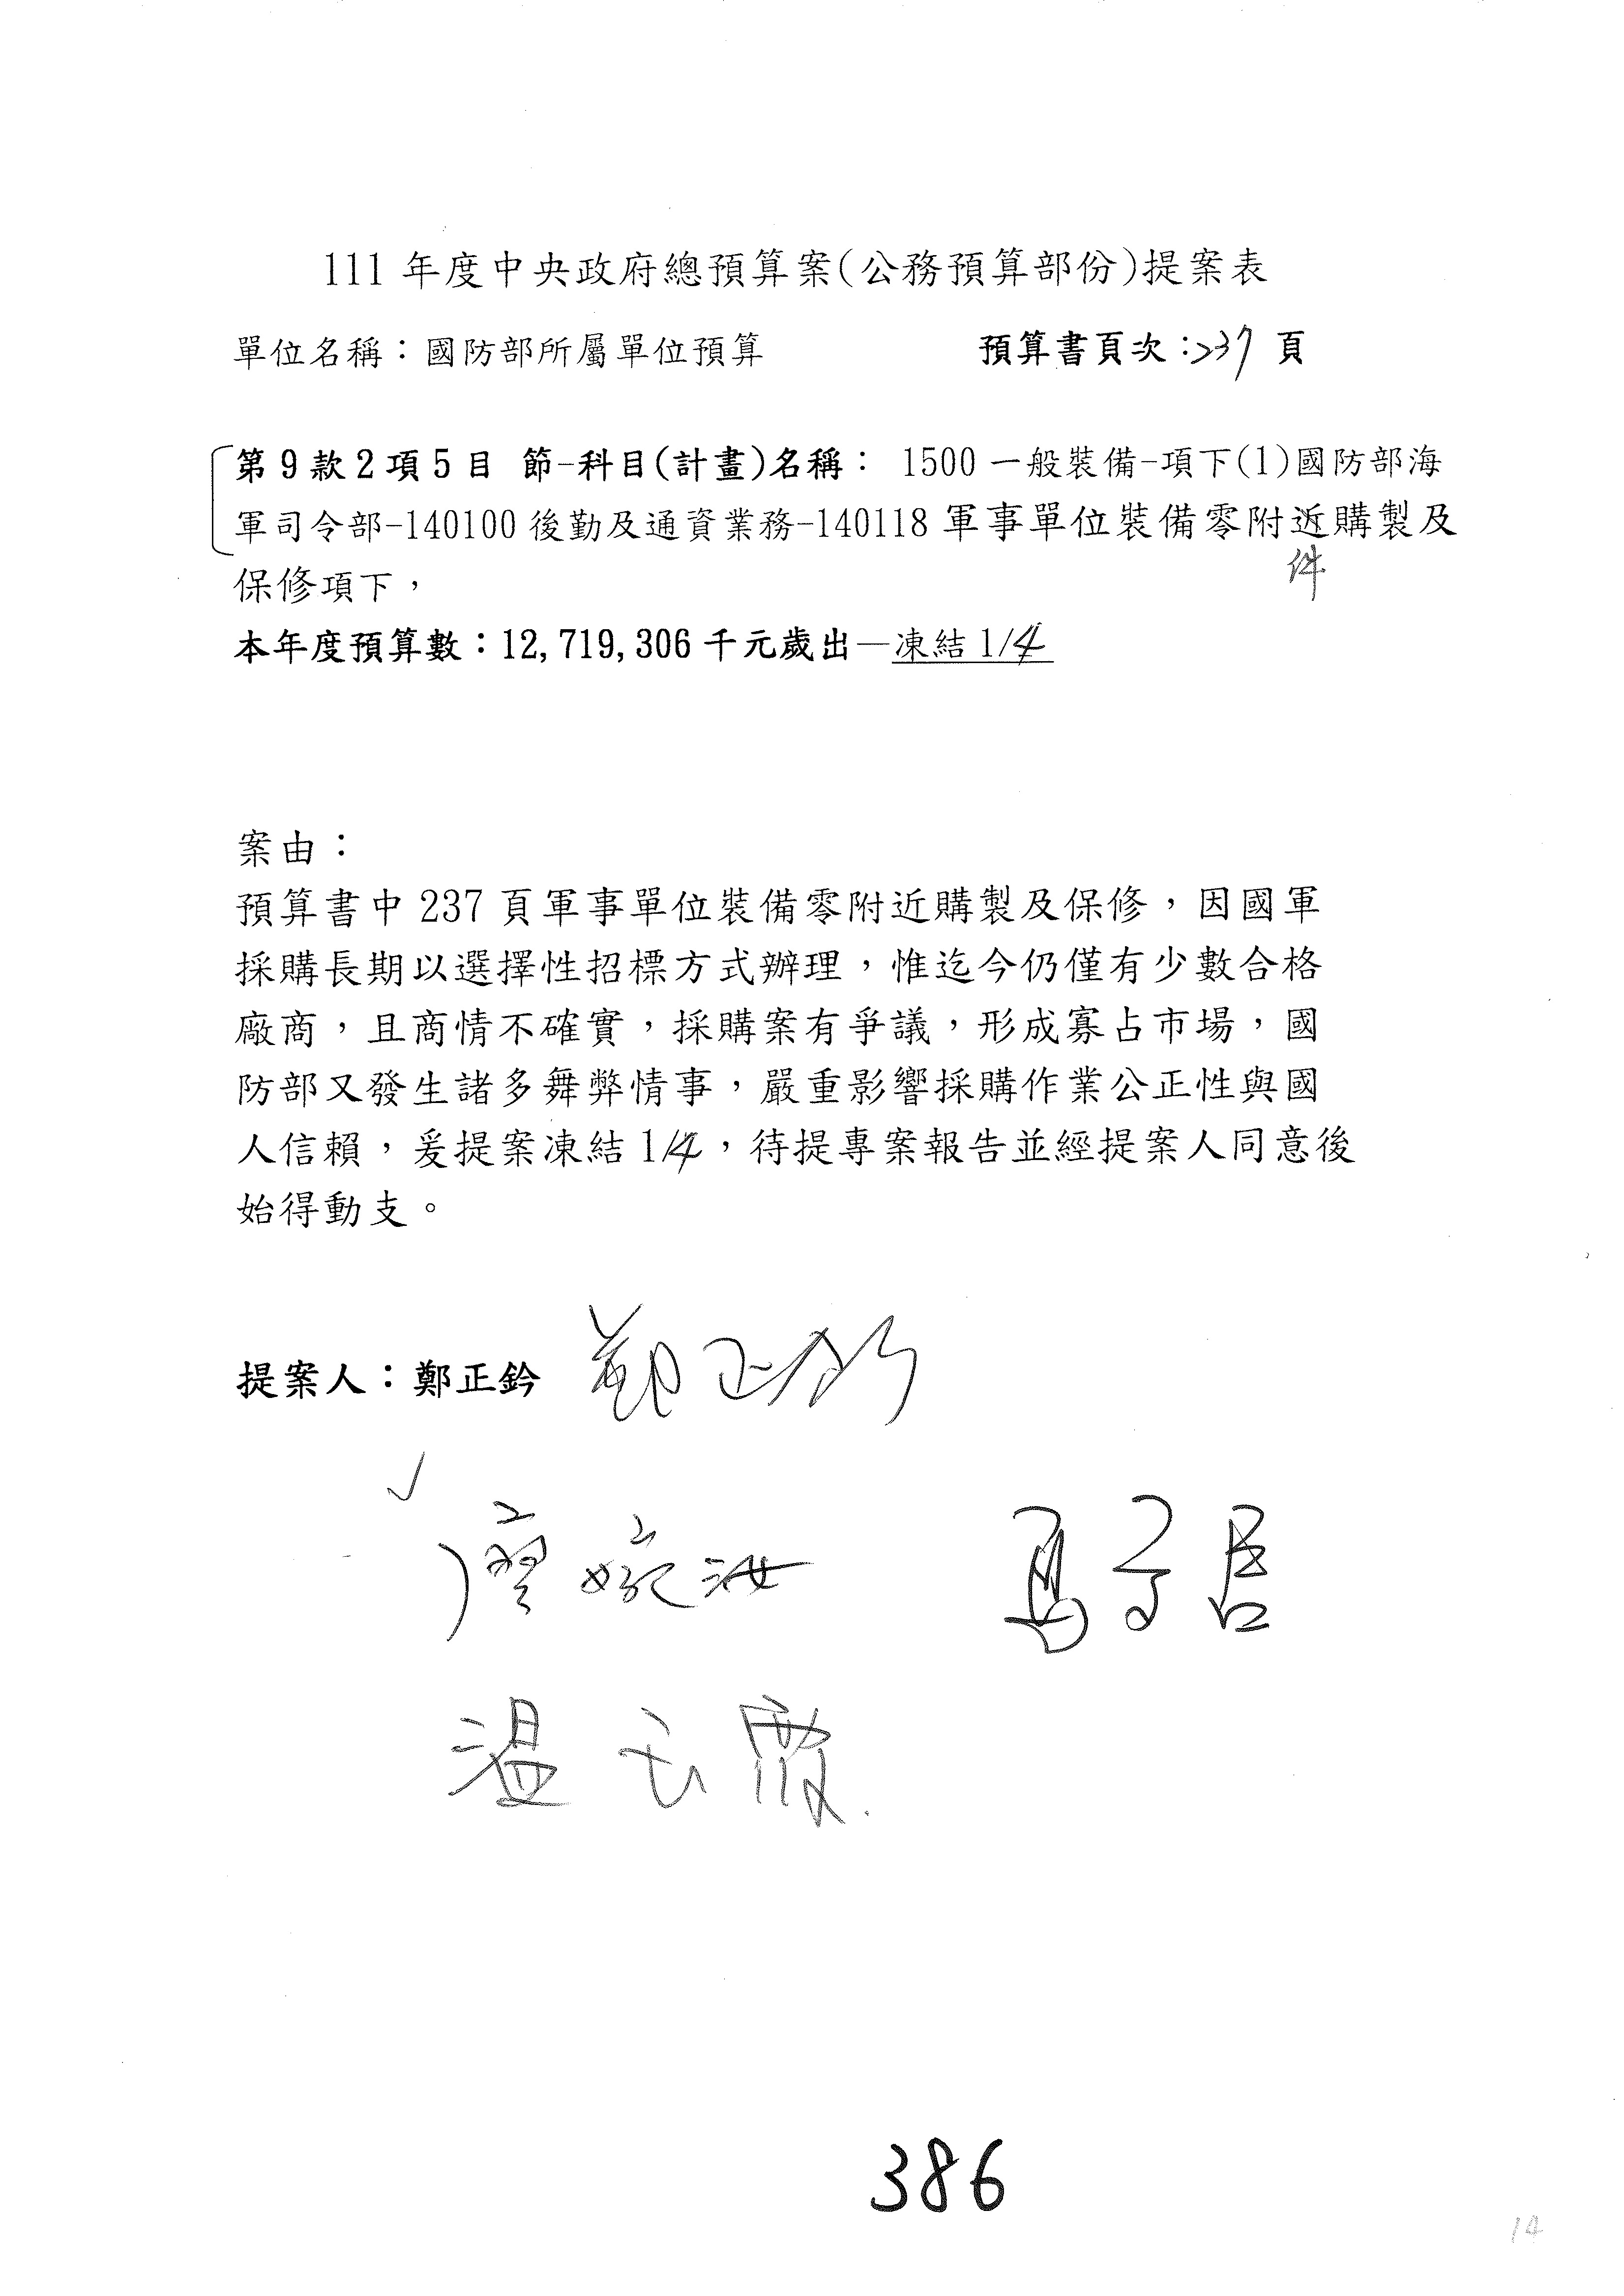 111 年度中央政府總預算案(公務預算部份)提案表
單位名稱：國防部所屬單位預算 預算書頁次：237 頁
第 9 款 2 項 5 目 節-科目(計畫)名稱： 1500 一般裝備-項下(1)國防部海
軍司令部-140100 後勤及通資業務-140118 軍事單位裝備零附近購製及
件
保修項下，
本年度預算數：12,719,306 千元歲出—凍結 1/4
案由：
預算書中 237 頁軍事單位裝備零附近購製及保修，因國軍
採購長期以選擇性招標方式辦理，惟迄今仍僅有少數合格
廠商，且商情不確實，採購案有爭議，形成寡占市場，國
防部又發生諸多舞弊情事，嚴重影響採購作業公正性與國
人信賴，爰提案凍結 1/4，待提專案報告並經提案人同意後
始得動支。
提案人：鄭正鈐 鄭正鈐
廖婉汝 馬文君
溫玉霞
386
14